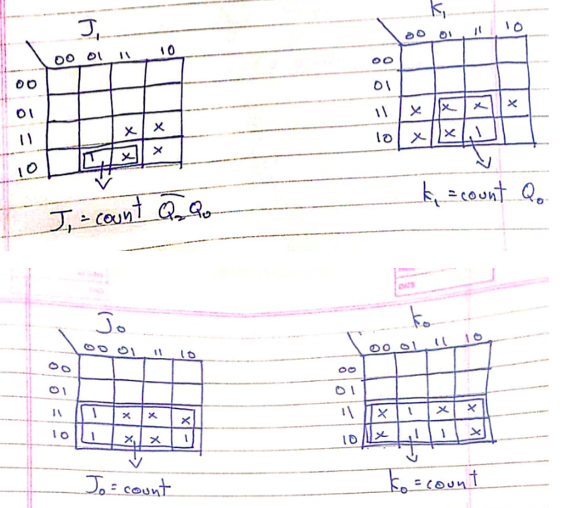 J₁
00 01 11 10
00
01
11 x x
10 1 x x
J₁ = count Q̅₂Q₀
K₁
00 01 11 10
00
01
11 x x x x
10 x x 1
K₁ = count Q₀
J₀
00 01 11 10
00
01
11 1 x x x
10 1 x x 1
J₀ = count
K₀
00 01 11 10
00
01
11 x 1 x x
10 x 1 1 x
K₀ = count